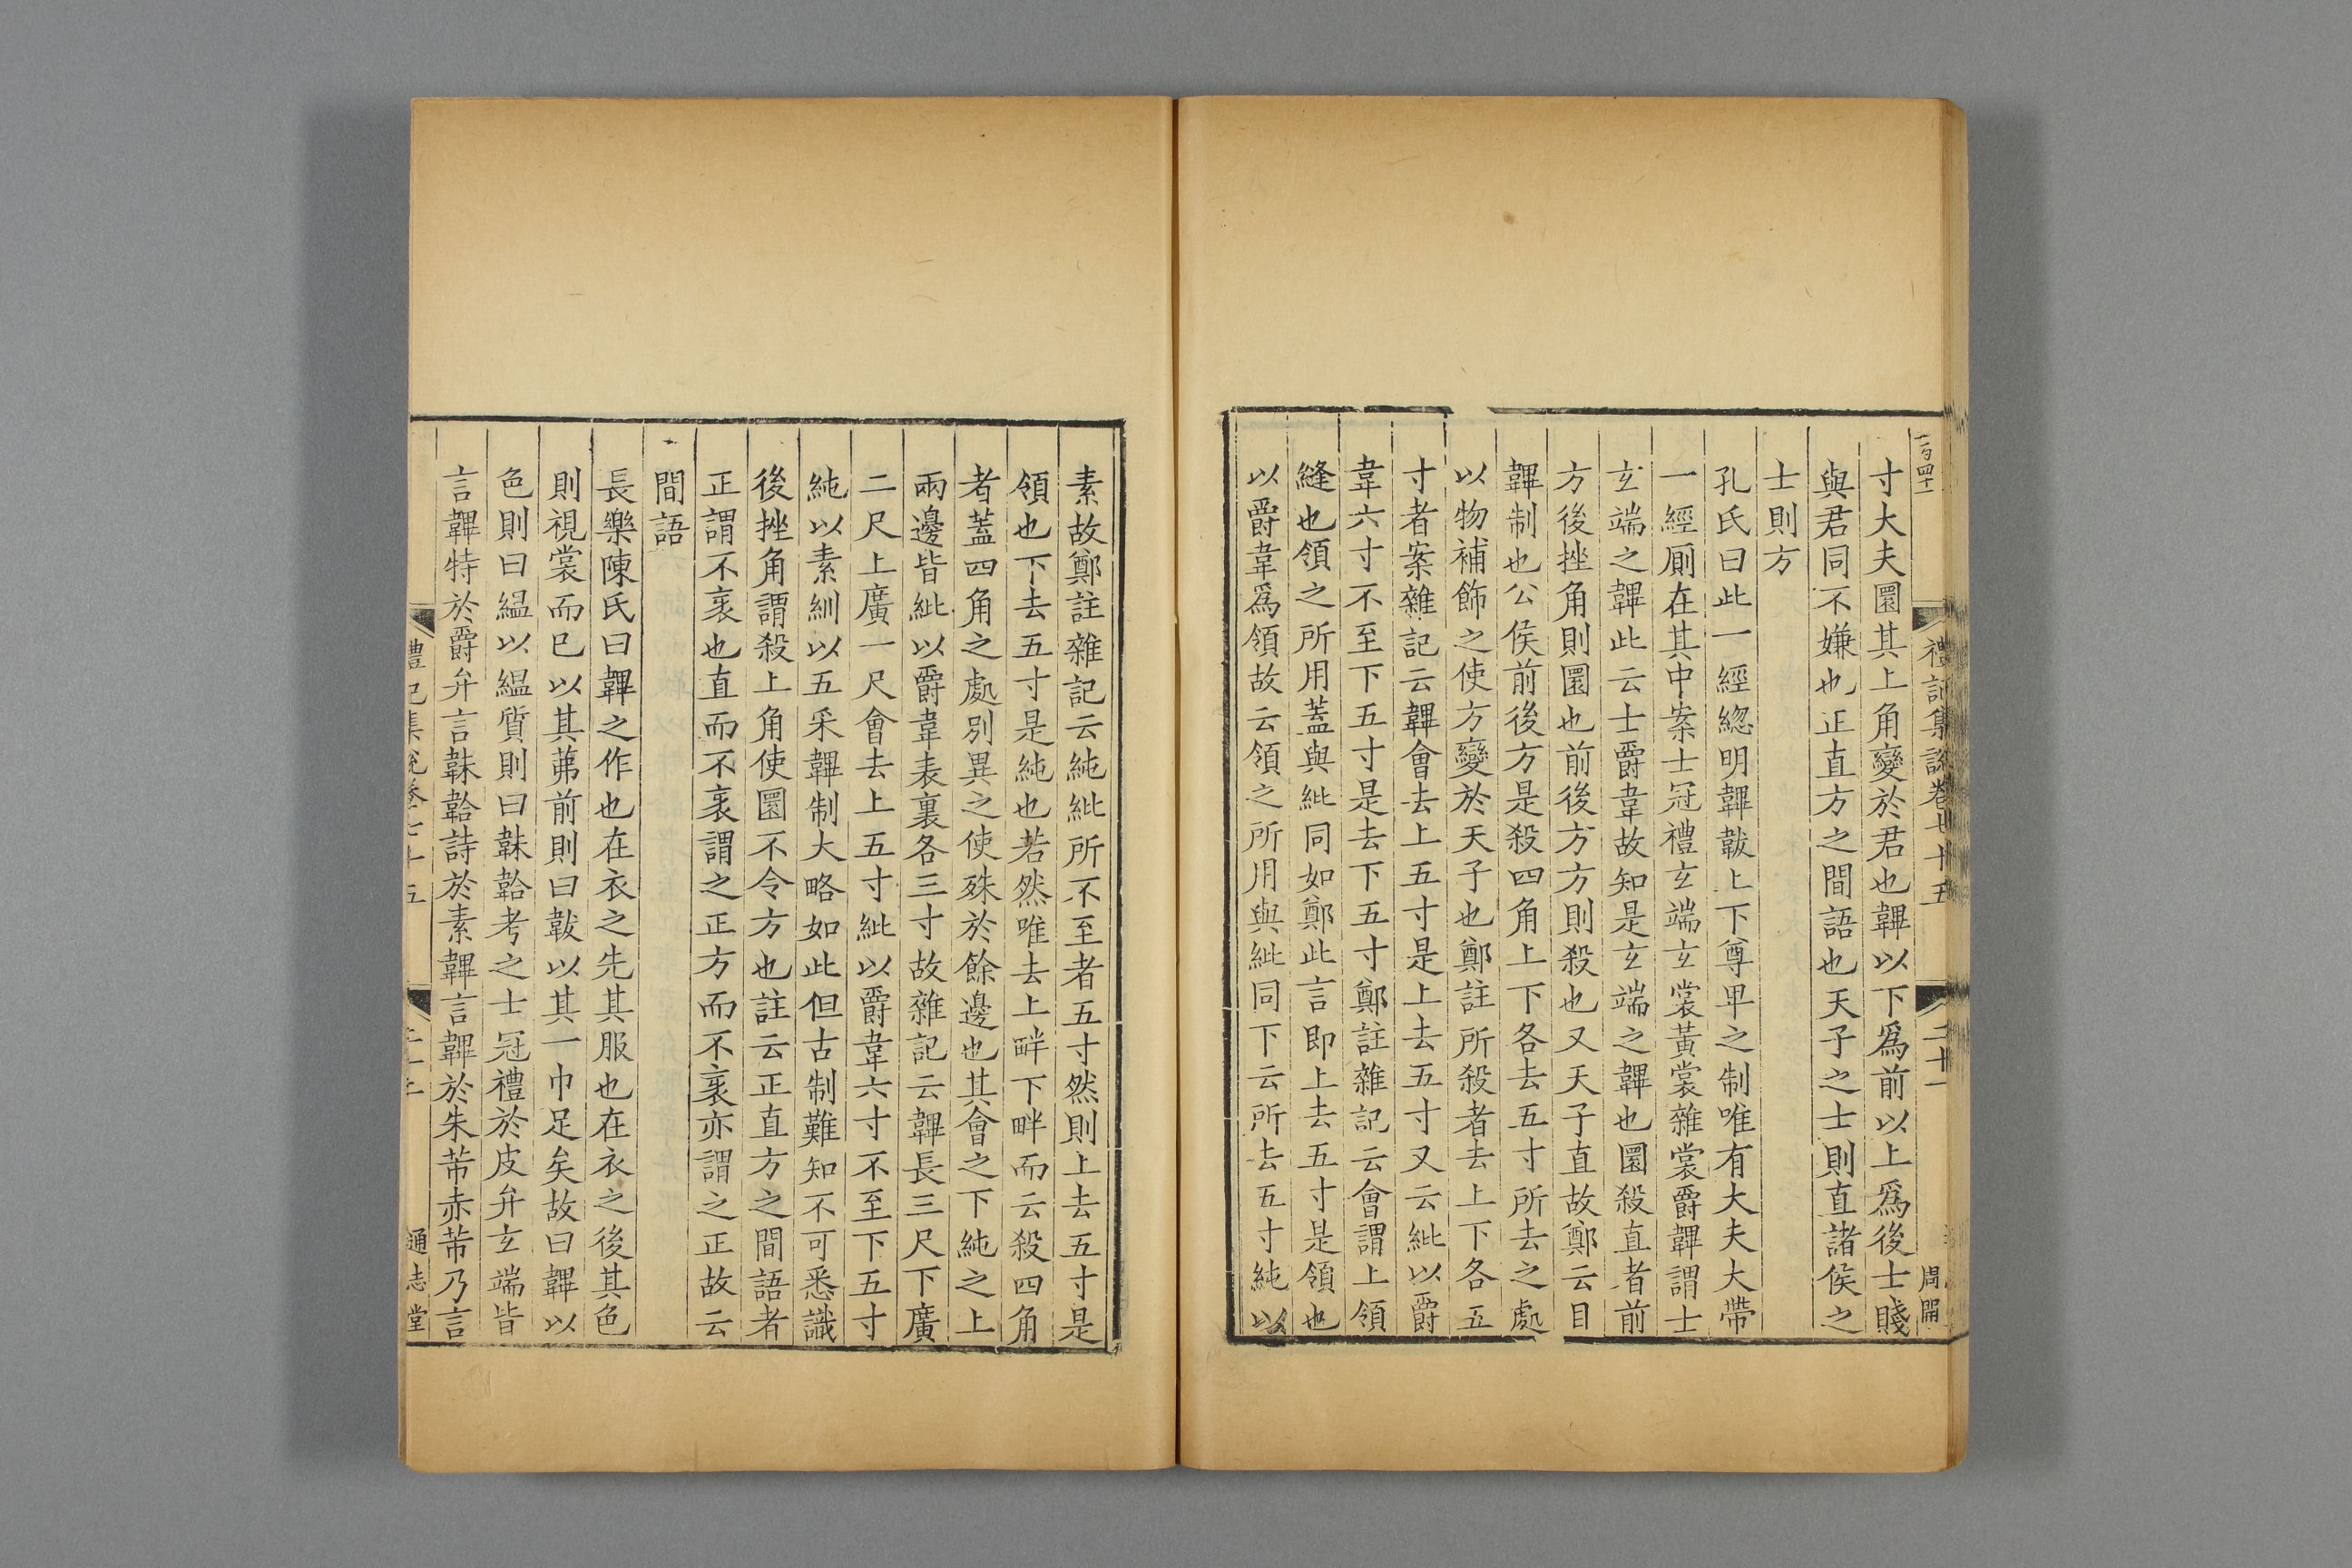 一百四十一
禮記集說卷七十五
二十一
周開
寸大夫圜其上角變於君也韠以下爲前以上爲後士賤
與君同不嫌也正直方之間語也天子之士則直諸侯之
士則方
孔氏曰此一經緫明韠韍上下尊卑之制唯有大夫大帶
一經厠在其中案士冠禮玄端玄裳黃裳雜裳爵韠謂士
玄端之韠此云士爵韋故知是玄端之韠也圜殺直者前
方後挫角則圜也前後方方則殺也又天子直故鄭云目
韠制也公侯前後方是殺四角上下各去五寸所去之處
以物補飾之使方變於天子也鄭註所殺者去上下各五
寸者案雜記云韠會去上五寸是上去五寸又云紕以爵
韋六寸不至下五寸是去下五寸鄭註雜記云會謂上領
縫也領之所用蓋與紕同如鄭此言即上去五寸是領也
以爵韋爲領故云領之所用與紕同下云所去五寸純以
素故鄭註雜記云純紕所不至者五寸然則上去五寸是
領也下去五寸是純也若然唯去上畔下畔而云殺四角
者蓋四角之處別異之使殊於餘邊也其會之下純之上
兩邊皆紕以爵韋表裏各三寸故雜記云韠長三尺下廣
二尺上廣一尺會去上五寸紕以爵韋六寸不至下五寸
純以素紃以五采韠制大略如此但古制難知不可悉識
後挫角謂殺上角使圜不令方也註云正直方之間語者
正謂不衺也直而不衺謂之正方而不衺亦謂之正故云
間語
長樂陳氏曰韠之作也在衣之先其服也在衣之後其色
則視裳而巳以其茀前則曰韍以其一巾足矣故曰韠以
色則曰縕以縕質則曰韎韐考之士冠禮於皮弁玄端皆
言韠特於爵弁言韎韐詩於素韠言韠於朱芾赤芾乃言
禮記集說卷七十五
通志堂